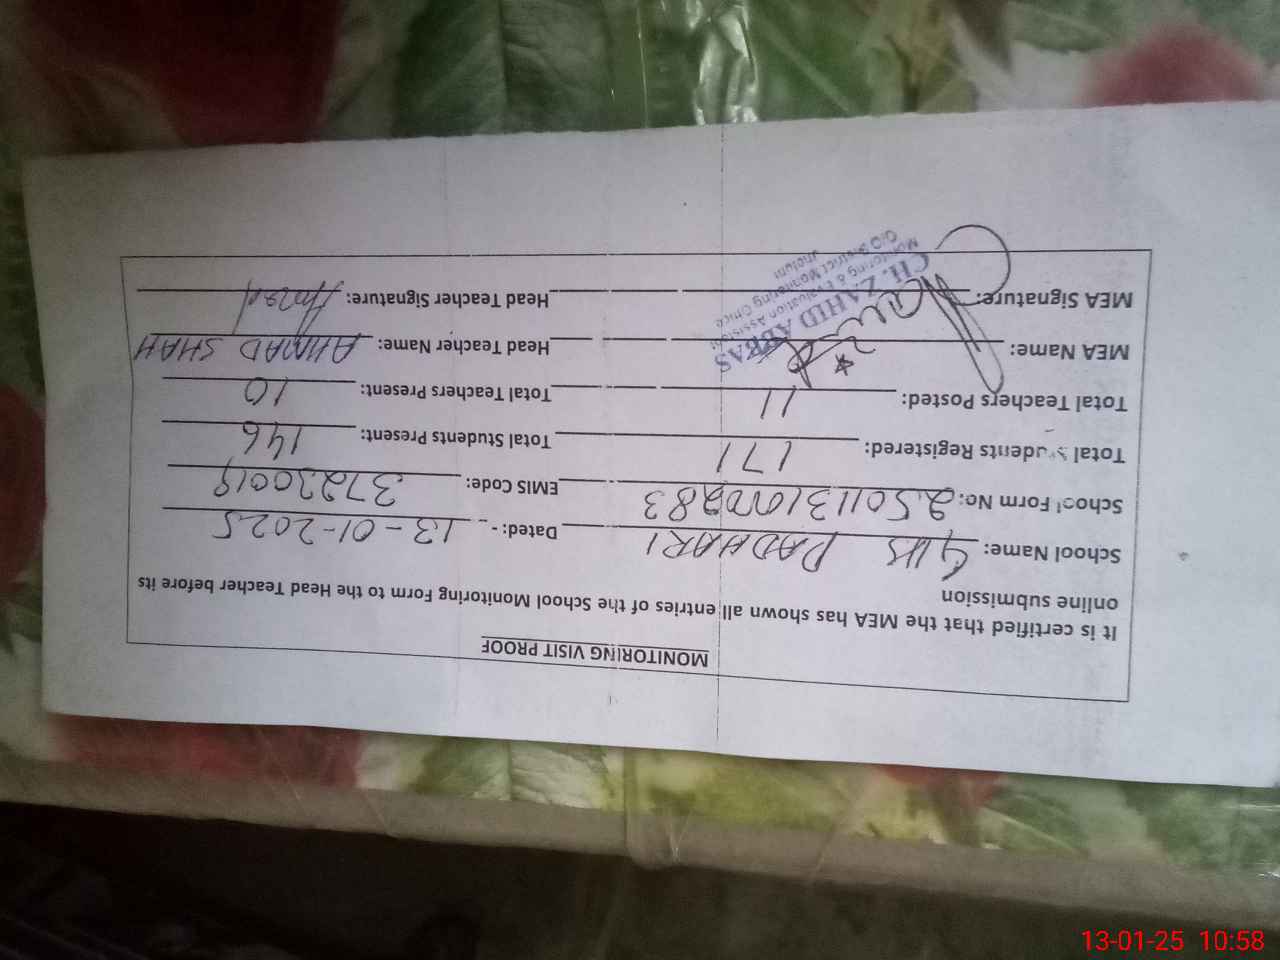 MONITORING VISIT PROOF
It is certified that the MEA has shown all entries of the School Monitoring Form to the Head Teacher before its
online submission
School Name: GHS PADHARI Dated: - 13-01-2025
School Form No: EMIS Code: 37230019
Total Students Registered: 171 Total Students Present: 146
Total Teachers Posted: 11 Total Teachers Present: 10
MEA Name: Head Teacher Name: AHMAD SHAH
MEA Signature: Head Teacher Signature:
CH. ZAHID ABBAS
Monitoring & Evaluation Assistant
O/O District Monitoring Office
13-01-25 10:58